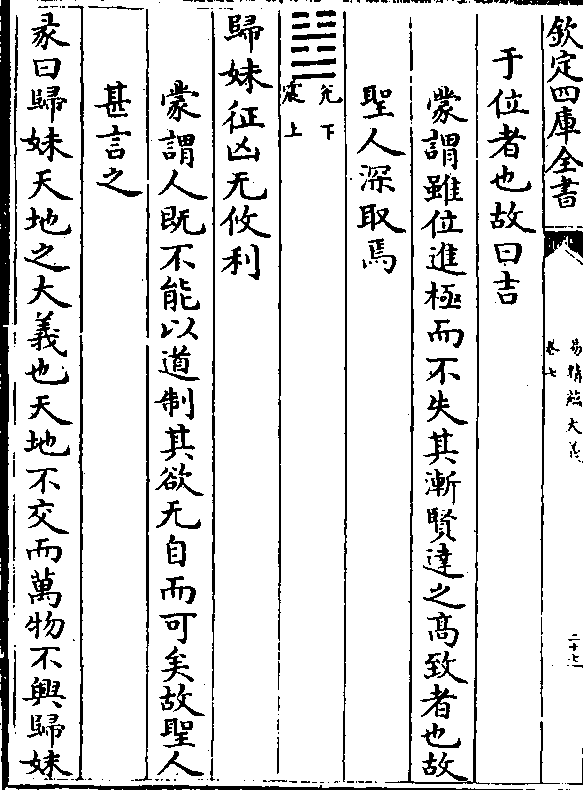 欽定四庫全書
易精蘊大義
卷七
二十七
于位者也故曰吉
蒙謂雖位進極而不失其漸賢達之高致者也故
聖人深取焉
兊下
震上
歸妹征凶无攸利
蒙謂人既不能以道制其欲无自而可矣故聖人
甚言之
彖曰歸妹天地之大義也天地不交而萬物不興歸妹